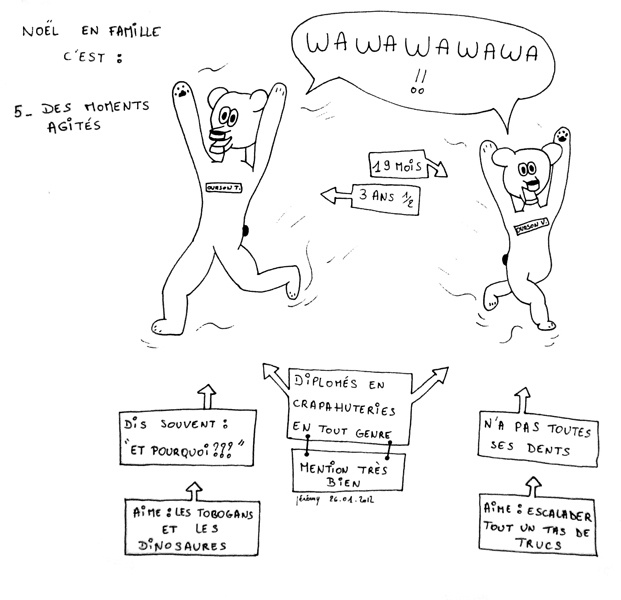 NOËL EN FAMILLE
C'EST :
5_ DES MOMENTS
AGITÉS
WAWAWAWAWA
!!
OURSON T.
19 MOIS
3 ANS 1/2
OURSON V.
DIPLOMÉS EN
CRAPAHUTERIES
EN TOUT GENRE
MENTION TRÈS
BIEN
jérémy 26.01.2012
DIS SOUVENT :
"ET POURQUOI ???"
AIME : LES TOBOGANS
ET LES
DINOSAURES
N'A PAS TOUTES
SES DENTS
AIME : ESCALADER
TOUT UN TAS DE
TRUCS